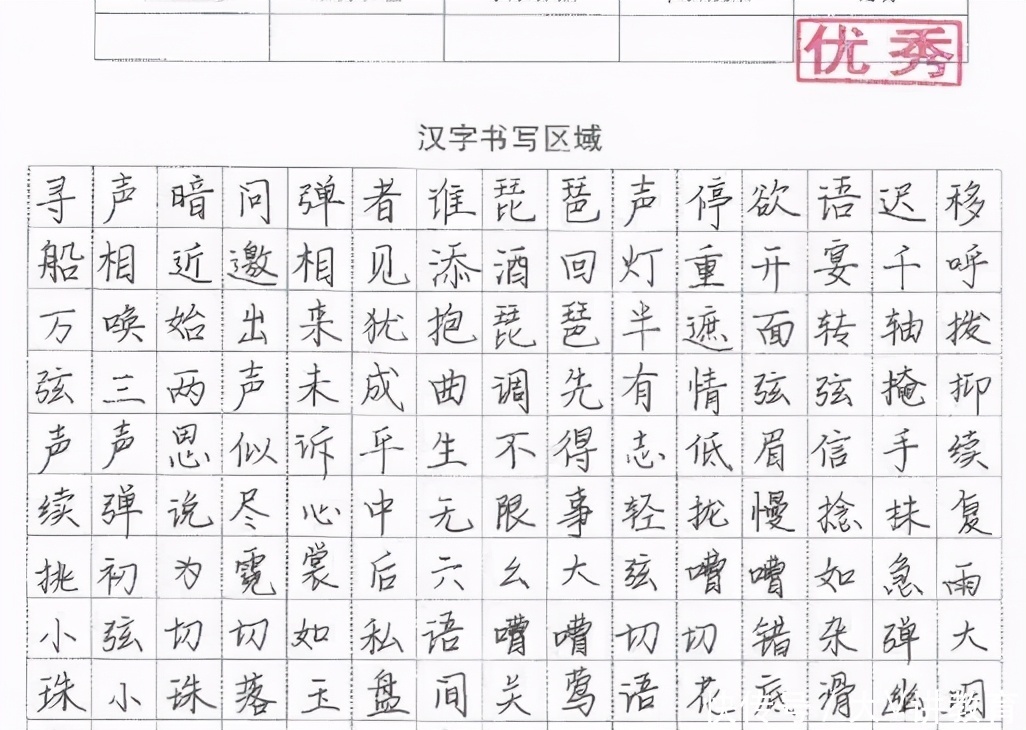 优秀
汉字书写区域
寻声暗问弹者谁琵琶声停欲语迟移
船相近邀相见添酒回灯重开宴千呼
万唤始出来犹抱琵琶半遮面转轴拨
弦三两声未成曲调先有情弦弦掩抑
声声思似诉平生不得志低眉信手续
续弹说尽心中无限事轻拢慢捻抹复
挑初为霓裳后六幺大弦嘈嘈如急雨
小弦切切如私语嘈嘈切切错杂弹大
珠小珠落玉盘间关莺语花底滑幽